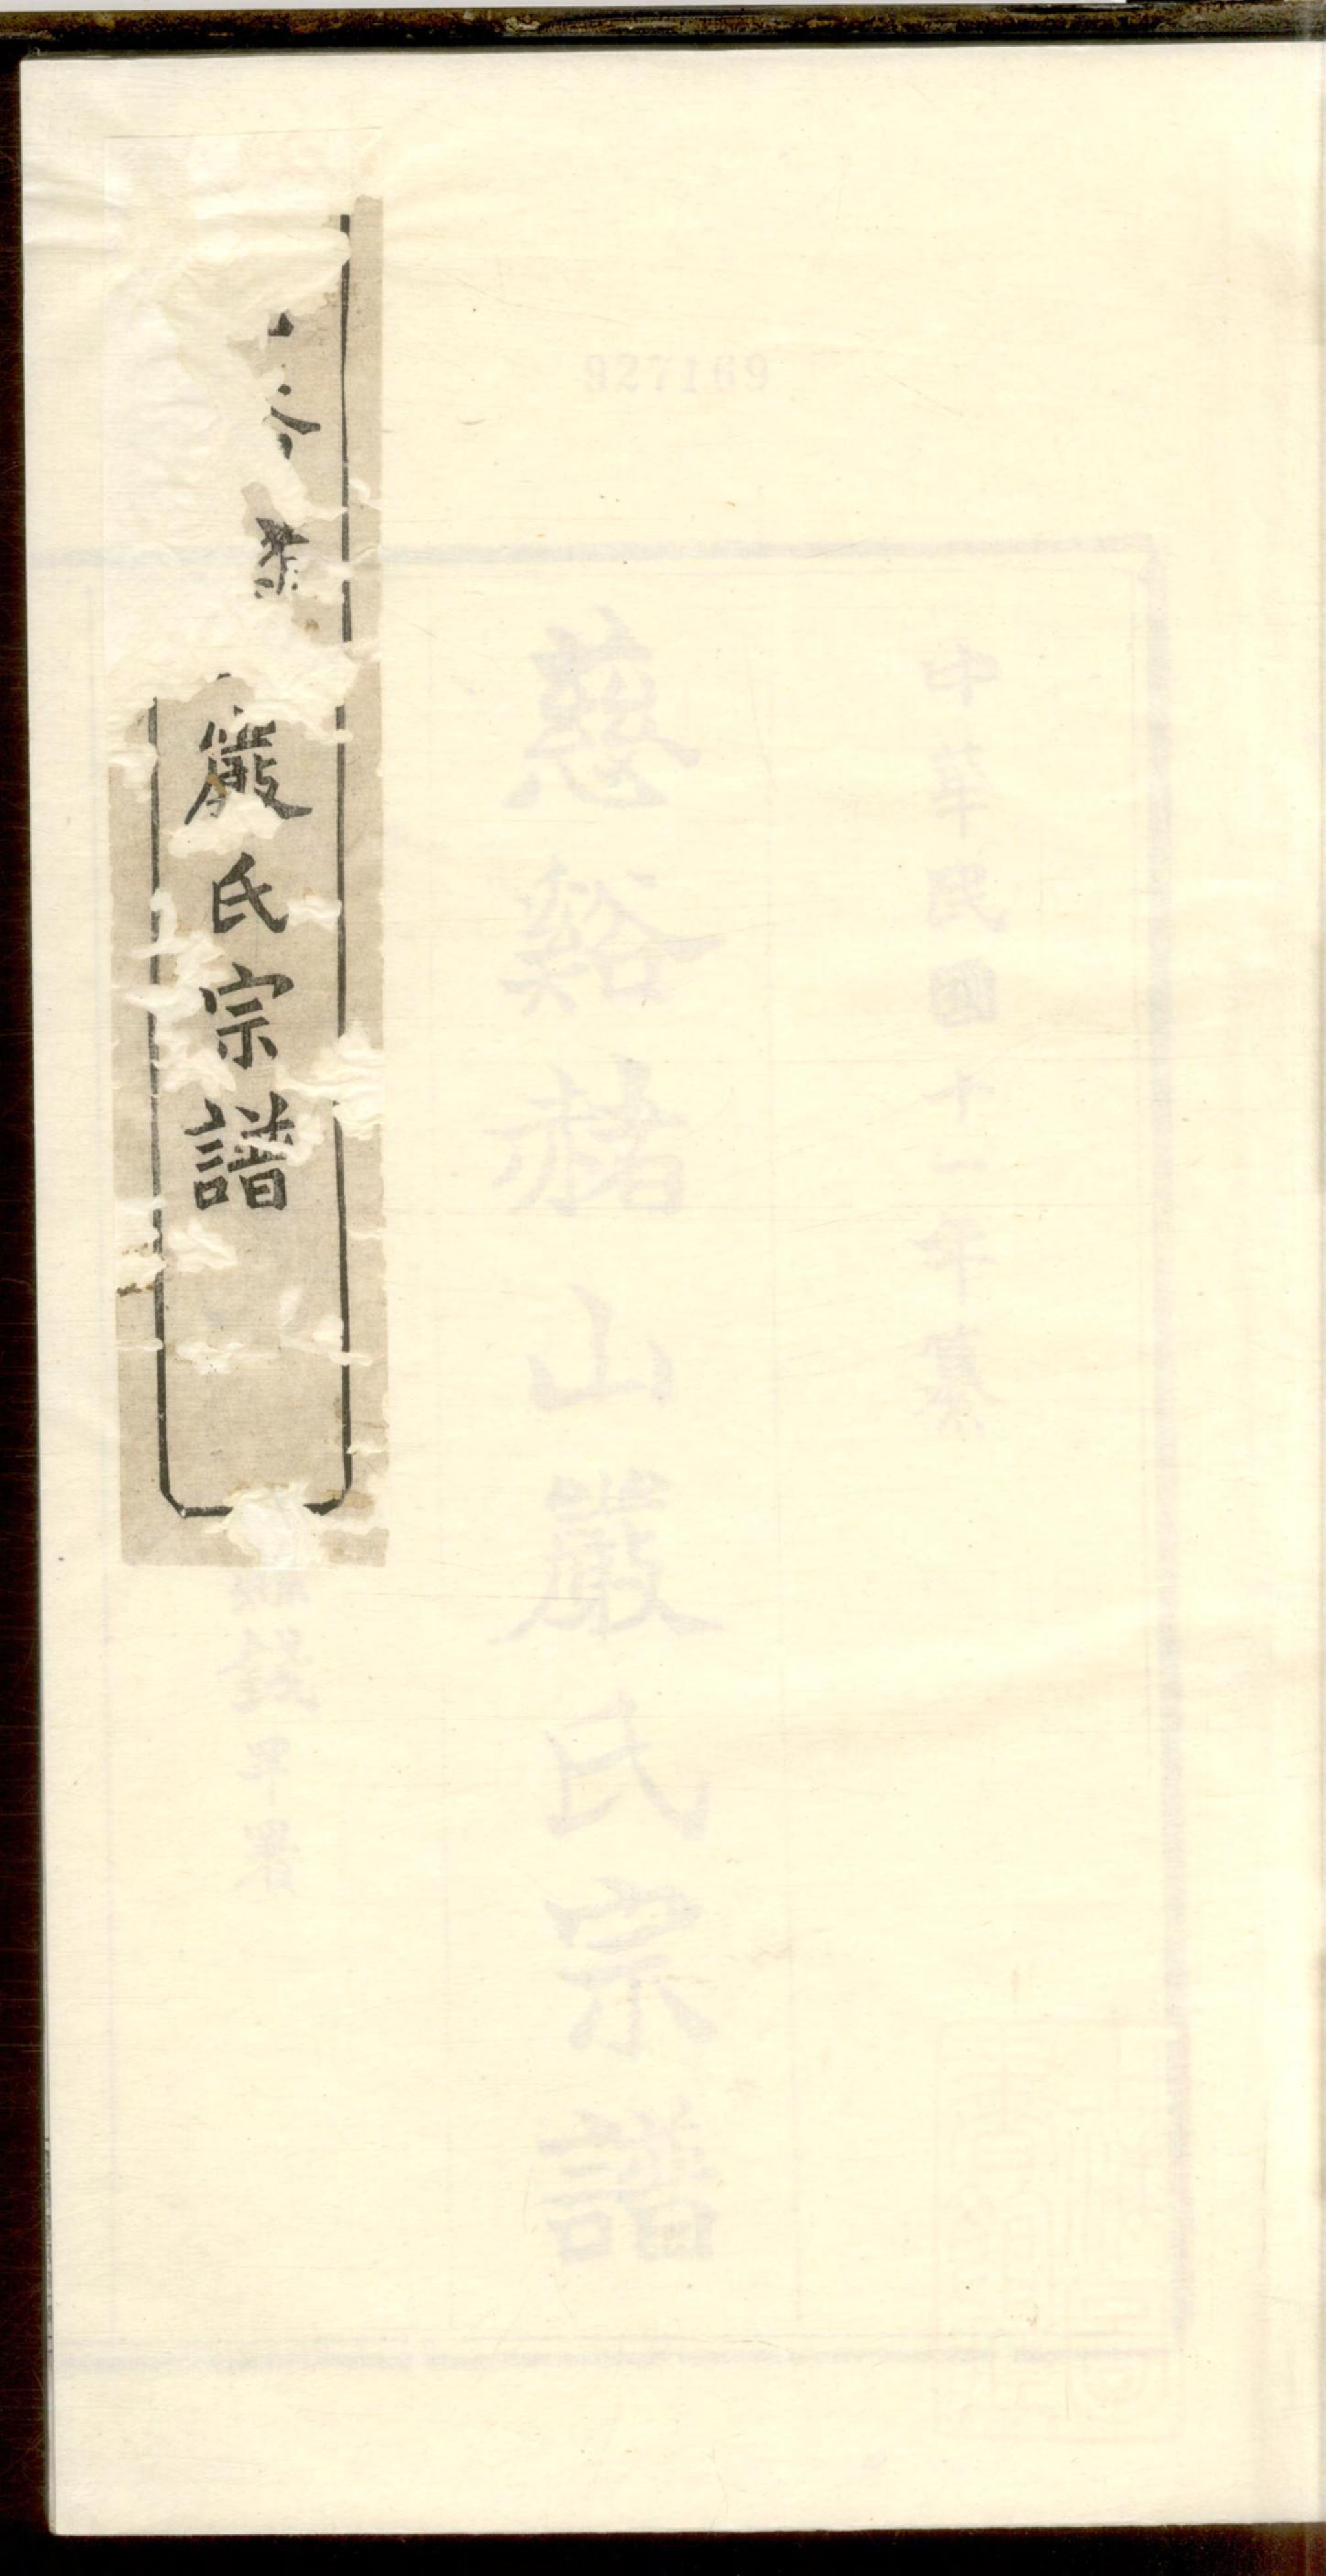 927169
中華民國十一年纂
慈谿赭山嚴氏宗譜
錢罕署
嚴氏宗譜